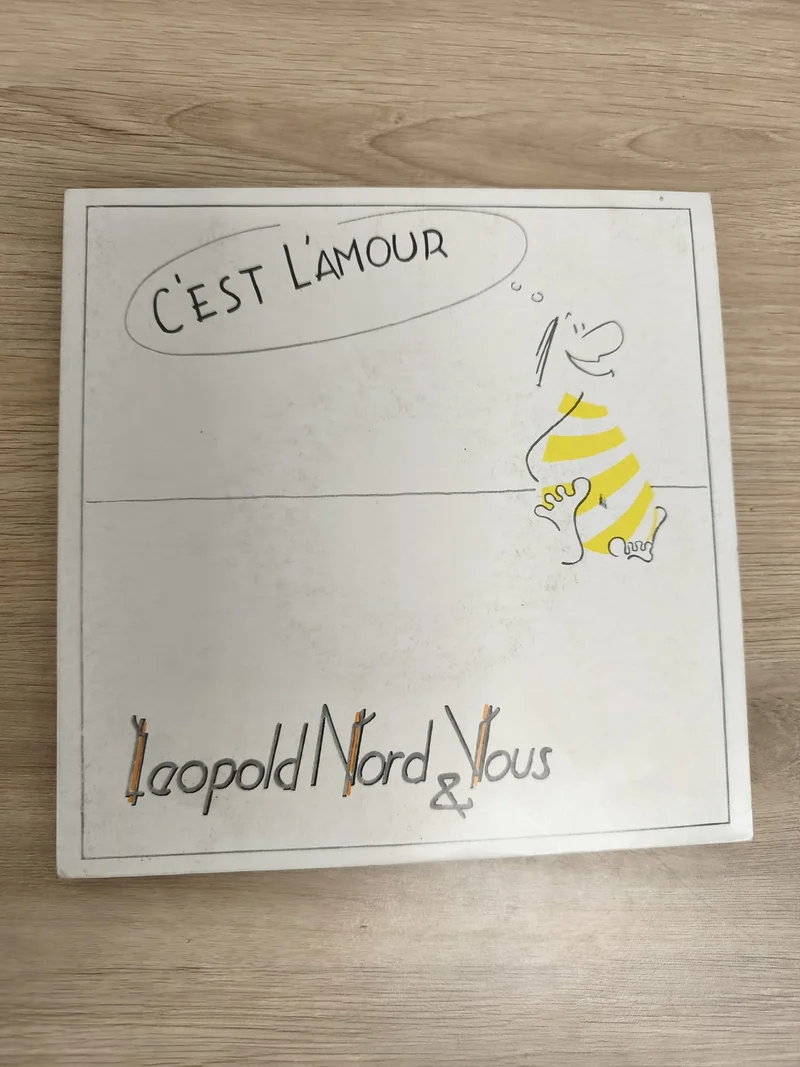 C'EST L'AMOUR
Leopold Nord & Vous